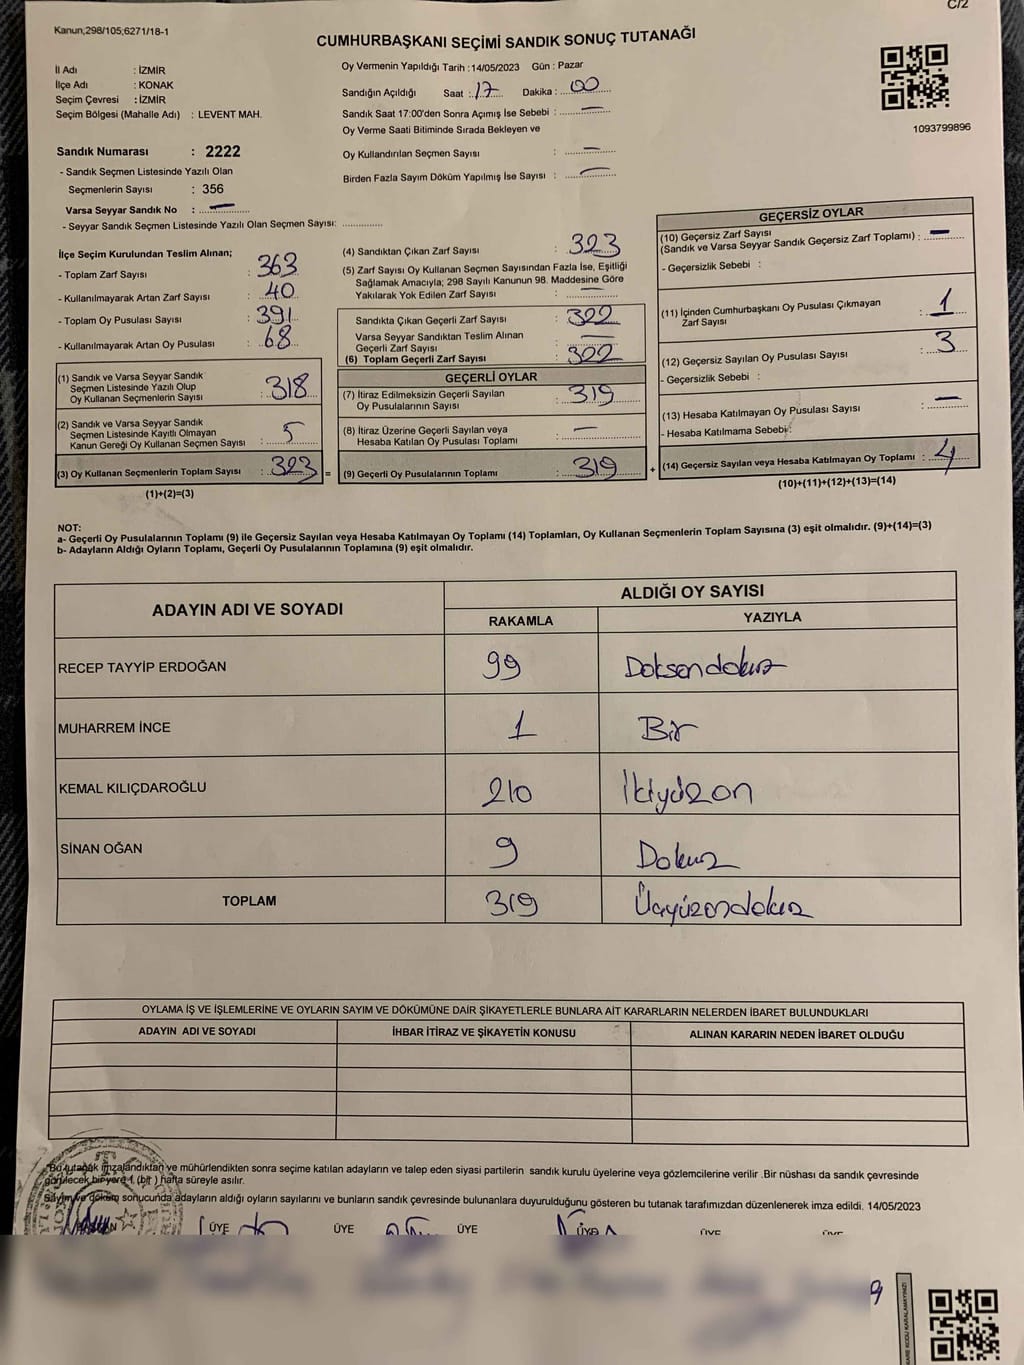 C/2
Kanun;298/105;6271/18-1
CUMHURBAŞKANI SEÇİMİ SANDIK SONUÇ TUTANAĞI
İl Adı : İZMİR
İlçe Adı : KONAK
Seçim Çevresi : İZMİR
Seçim Bölgesi (Mahalle Adı) : LEVENT MAH.
Oy Vermenin Yapıldığı Tarih :14/05/2023 Gün : Pazar
Sandığın Açıldığı Saat : 17 Dakika : 00
Sandık Saat 17:00'den Sonra Açımış İse Sebebi : —
Oy Verme Saati Bitiminde Sırada Bekleyen ve
Oy Kullandırılan Seçmen Sayısı : —
Birden Fazla Sayım Döküm Yapılmış İse Sayısı : —
1093799896
Sandık Numarası : 2222
- Sandık Seçmen Listesinde Yazılı Olan
Seçmenlerin Sayısı : 356
Varsa Seyyar Sandık No : —
- Seyyar Sandık Seçmen Listesinde Yazılı Olan Seçmen Sayısı:
İlçe Seçim Kurulundan Teslim Alınan;
- Toplam Zarf Sayısı : 363
- Kullanılmayarak Artan Zarf Sayısı : 40
- Toplam Oy Pusulası Sayısı : 391
- Kullanılmayarak Artan Oy Pusulası : 68
(1) Sandık ve Varsa Seyyar Sandık
Seçmen Listesinde Yazılı Olup
Oy Kullanan Seçmenlerin Sayısı : 318
(2) Sandık ve Varsa Seyyar Sandık
Seçmen Listesinde Kayıtlı Olmayan
Kanun Gereği Oy Kullanan Seçmen Sayısı : 5
(3) Oy Kullanan Seçmenlerin Toplam Sayısı : 323 =
(1)+(2)=(3)
(4) Sandıktan Çıkan Zarf Sayısı : 323
(5) Zarf Sayısı Oy Kullanan Seçmen Sayısından Fazla İse, Eşitliği
Sağlamak Amacıyla; 298 Sayılı Kanunun 98. Maddesine Göre
Yakılarak Yok Edilen Zarf Sayısı : —
Sandıkta Çıkan Geçerli Zarf Sayısı : 322
Varsa Seyyar Sandıktan Teslim Alınan
Geçerli Zarf Sayısı : —
(6) Toplam Geçerli Zarf Sayısı : 322
GEÇERLİ OYLAR
(7) İtiraz Edilmeksizin Geçerli Sayılan
Oy Pusulalarının Sayısı : 319
(8) İtiraz Üzerine Geçerli Sayılan veya
Hesaba Katılan Oy Pusulası Toplamı : —
(9) Geçerli Oy Pusulalarının Toplamı : 319 +
GEÇERSİZ OYLAR
(10) Geçersiz Zarf Sayısı
(Sandık ve Varsa Seyyar Sandık Geçersiz Zarf Toplamı) : —
- Geçersizlik Sebebi :
(11) İçinden Cumhurbaşkanı Oy Pusulası Çıkmayan
Zarf Sayısı : 1
(12) Geçersiz Sayılan Oy Pusulası Sayısı : 3
- Geçersizlik Sebebi :
(13) Hesaba Katılmayan Oy Pusulası Sayısı : —
- Hesaba Katılmama Sebebi :
(14) Geçersiz Sayılan veya Hesaba Katılmayan Oy Toplamı : 4
(10)+(11)+(12)+(13)=(14)
NOT:
a- Geçerli Oy Pusulalarının Toplamı (9) ile Geçersiz Sayılan veya Hesaba Katılmayan Oy Toplamı (14) Toplamları, Oy Kullanan Seçmenlerin Toplam Sayısına (3) eşit olmalıdır. (9)+(14)=(3)
b- Adayların Aldığı Oyların Toplamı, Geçerli Oy Pusulalarının Toplamına (9) eşit olmalıdır.
ADAYIN ADI VE SOYADI
ALDIĞI OY SAYISI
RAKAMLA YAZIYLA
RECEP TAYYİP ERDOĞAN 99 Doksandokuz
MUHARREM İNCE 1 Bir
KEMAL KILIÇDAROĞLU 210 İkiyüzon
SİNAN OĞAN 9 Dokuz
TOPLAM 319 Üçyüzondokuz
OYLAMA İŞ VE İŞLEMLERİNE VE OYLARIN SAYIM VE DÖKÜMÜNE DAİR ŞİKAYETLERLE BUNLARA AİT KARARLARIN NELERDEN İBARET BULUNDUKLARI
ADAYIN ADI VE SOYADI İHBAR İTİRAZ VE ŞİKAYETİN KONUSU ALINAN KARARIN NEDEN İBARET OLDUĞU
Bu tutanak imzalandıktan ve mühürlendikten sonra seçime katılan adayların ve talep eden siyasi partilerin sandık kurulu üyelerine veya gözlemcilerine verilir .Bir nüshası da sandık çevresinde
görülecek bir yere 1 (bir) hafta süreyle asılır.
Sayım ve döküm sonucunda adayların aldığı oyların sayılarını ve bunların sandık çevresinde bulunanlara duyurulduğunu gösteren bu tutanak tarafımızdan düzenlenerek imza edildi. 14/05/2023
BAŞKAN ÜYE ÜYE ÜYE ÜYE ÜYE ÜYE